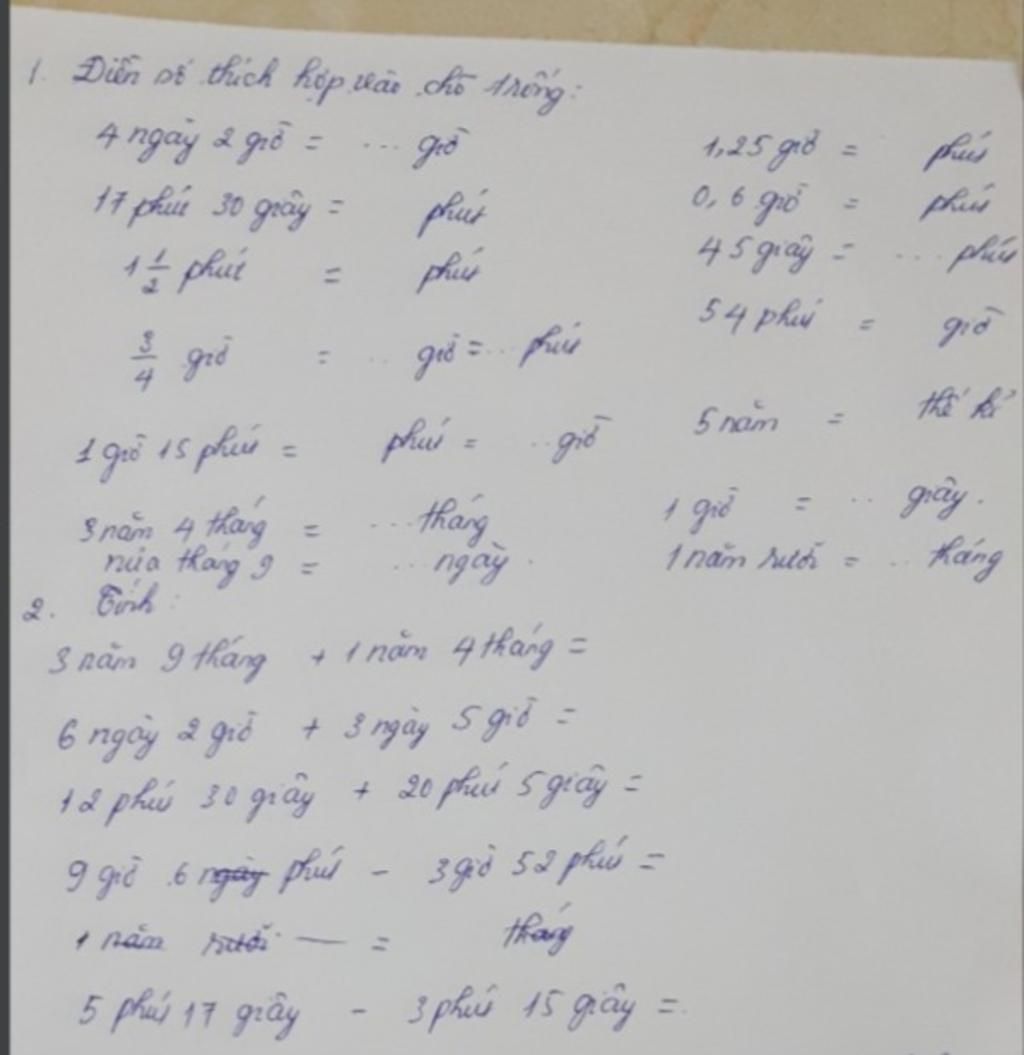 1. Điền số thích hợp vào chỗ trống:
4 ngày 2 giờ = ... giờ
1,25 giờ = phút
17 phút 30 giây = phút
0,6 giờ = phút
1 1/2 phút = phút
45 giây = ... phút
54 phút = giờ
3/4 giờ = .. giờ = .. phút
5 năm = thế kỉ
1 giờ 15 phút = phút = .. giờ
3 năm 4 tháng = ... tháng
1 giờ = .. giây.
nửa tháng 9 = ... ngày.
1 năm rưỡi = .. tháng
2. Tính:
3 năm 9 tháng + 1 năm 4 tháng =
6 ngày 2 giờ + 3 ngày 5 giờ =
12 phút 30 giây + 20 phút 5 giây =
9 giờ 6 ngày phút - 3 giờ 52 phút =
1 năm rưỡi — = tháng
5 phút 17 giây - 3 phút 15 giây =